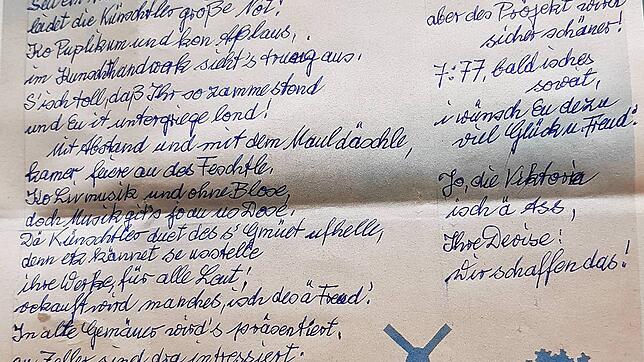 leidet die Künschtler große Not!
Ko Puplikum und kon Abplaus,
im Kunschthandwerk sieht's traurig aus.
S'isch toll, daß Ihr so zammestond
und Eu it untergriege lond!
Mit Abstand und mit dem Mauldäschle,
kamer feiere au des Feschtle.
Ko Livmusik und ohne Blose,
doch Musik git's jo au us Dose.
Dä Künschtler duet des s' Gmüet ufhelle,
denn etz kännet se usstelle
ihre Werke, für alle Leut,
vekauft wird manches, isch des ä Freud!
In alte Gemäuer wird's präsentiert,
Zeller sind dra intressiert.
aber des Projekt wird
sicher schöner!
7:77, bald isches
soweit,
i wünsch Eu dezu
viel Glück u. Freud!
Jo, die Viktoria
isch ä Ass,
Ihre Devise:
Wir schaffen das!